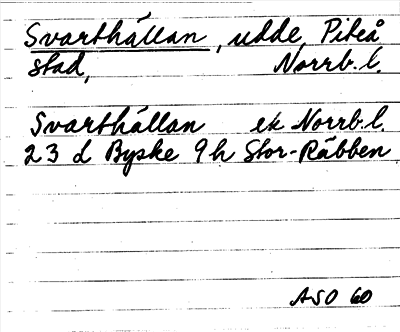 Svarthällan, udde, Piteå
stad, Norrb.l.
Svarthällan ek Norrb.l.
23 d Byske 9h Stor-Räbben
ASO 60